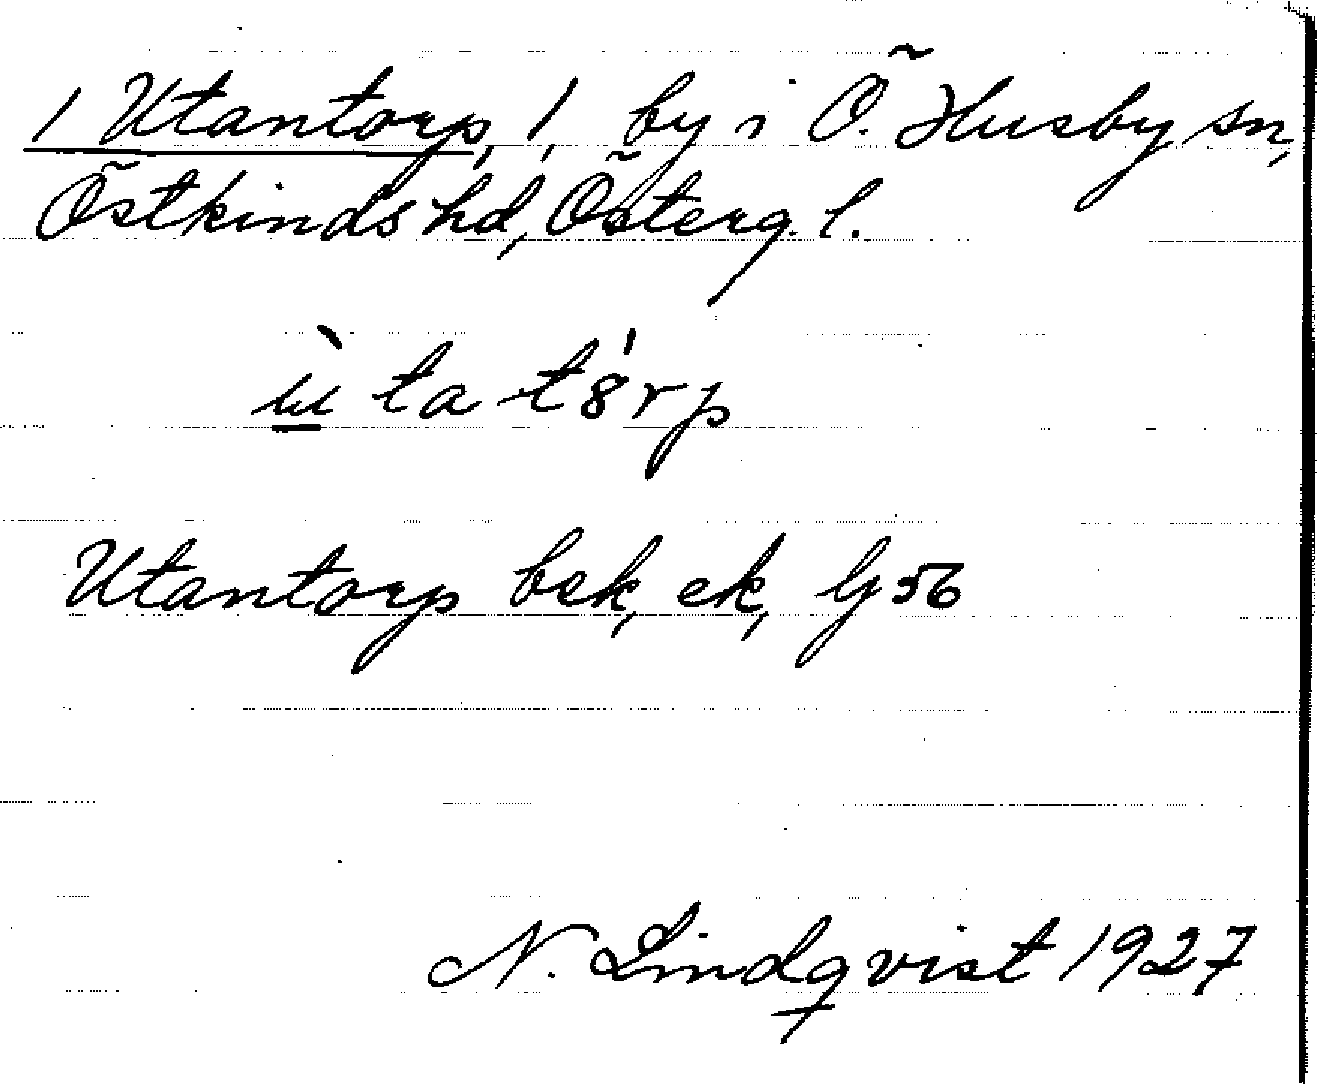 1 Utantorp, 1, by i Ö. Husby sn,
Östkinds hd, Österg. l.
ɯ̀ ta t8́rp
Utantorp bek, ek, Gj 56
N. Lindqvist 1927